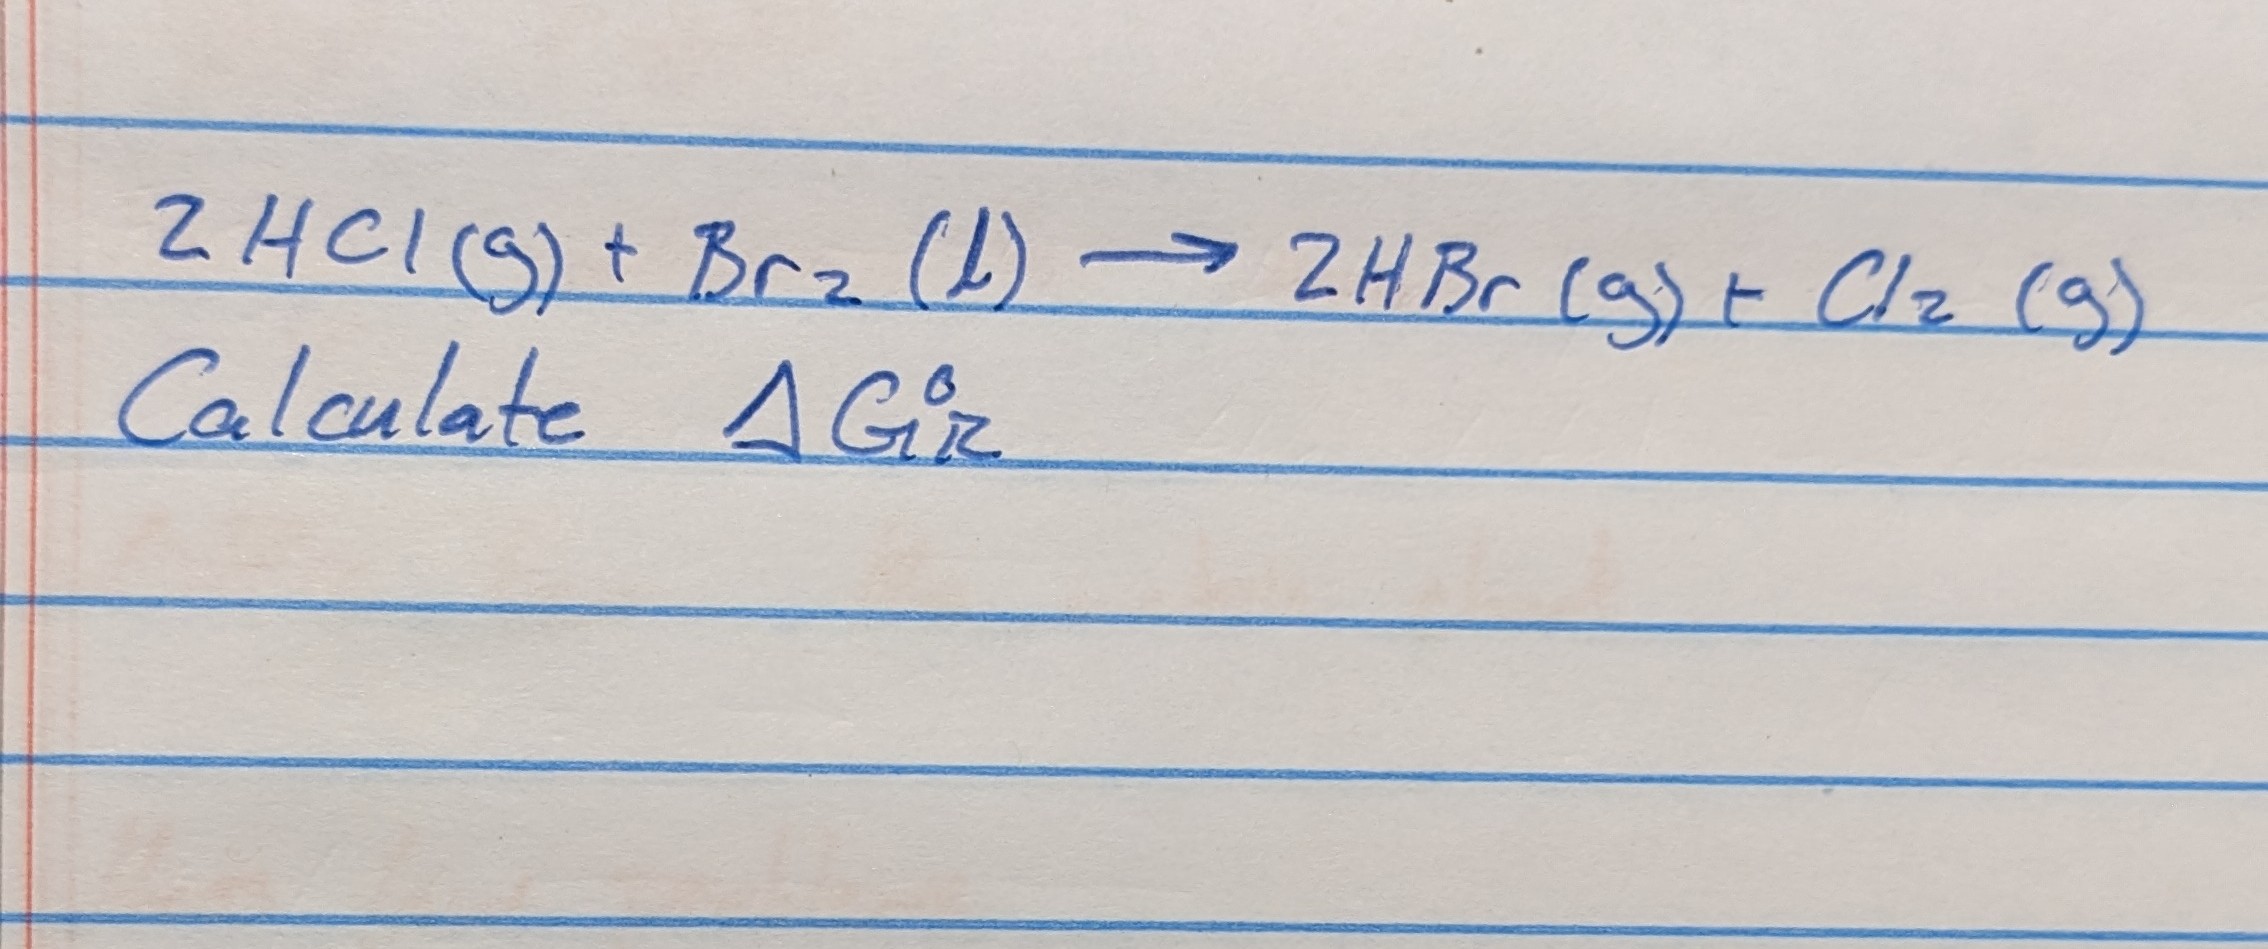 2 HCl (g) + Br₂ (l) → 2HBr (g) + Cl₂ (g)
Calculate ΔG°R